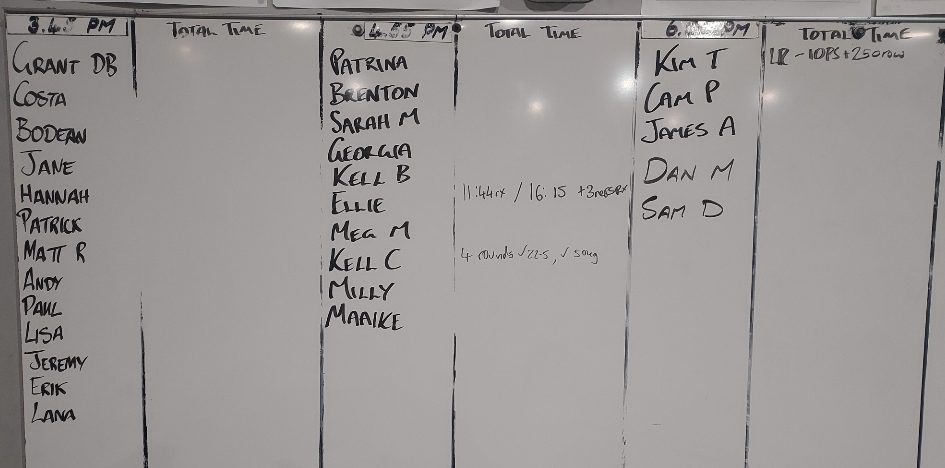 3.4 PM
TOTAL TIME
GRANT DB
COSTA
BODEAN
JANE
HANNAH
PATRICK
MATT R
ANDY
PAUL
LISA
JEREMY
ERIK
LANA
4. PM
TOTAL TIME
PATRINA
BRENTON
SARAH M
GEORGIA
KELL B
ELLIE 11:44rx / 16:15 +3
MEG M
KELL C 4 rounds √22.5, √
MILLY
MAAIKE
6. PM
TOTAL TIME
KIM T - 10PS + 250row
CAM P
JAMES A
DAN M
SAM D